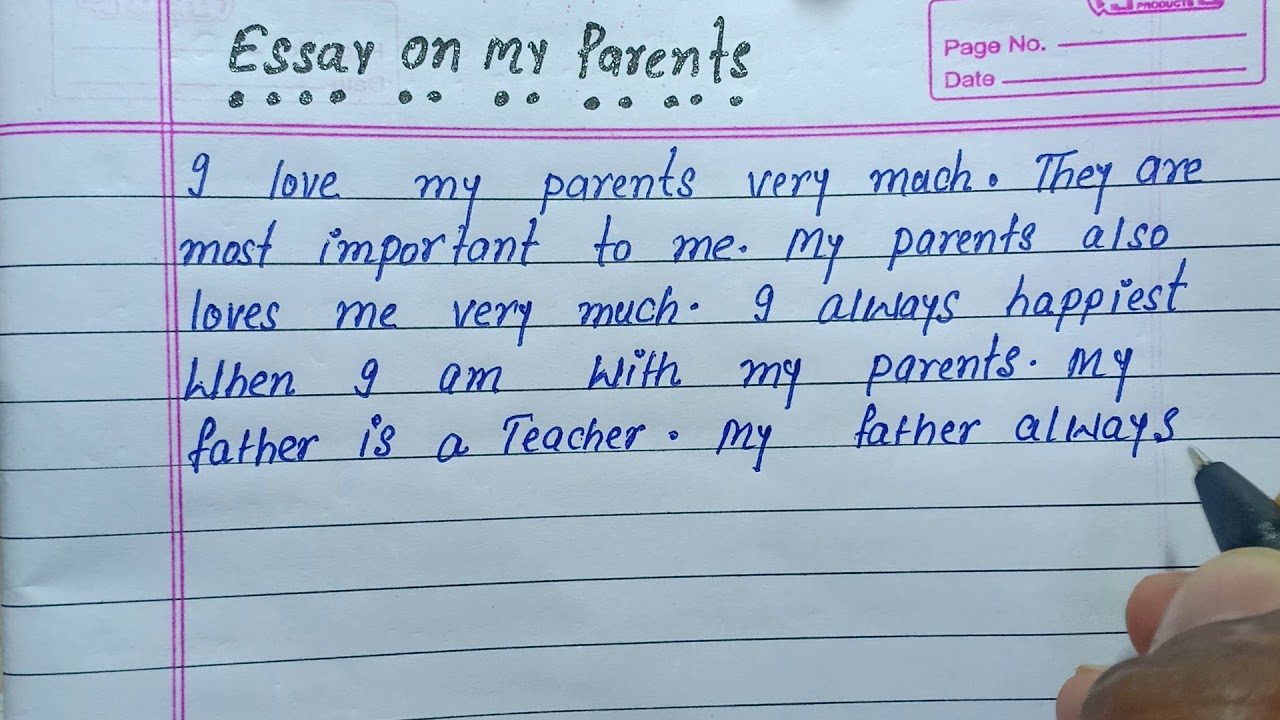 PRODUCTS
Essay on my Parents
Page No.
Date
I love my parents very much. They are
most important to me. My parents also
loves me very much. I always happiest
When I am With my parents. My
father is a Teacher. My father always